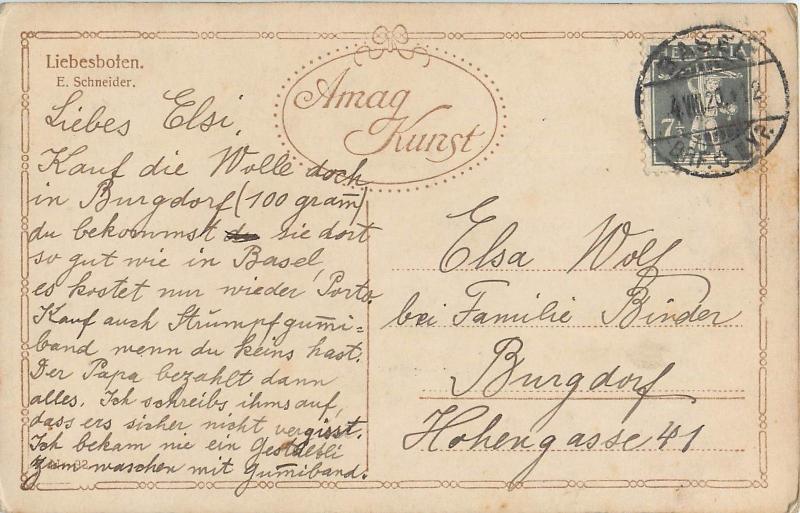 Liebesboten.
E. Schneider.
Amag
Kunst
HELVETIA
7½
BASEL
4.VIII.20.-12
BRF. EXP.
Liebes Elsi,
Kauf die Wolle doch
in Burgdorf (100 gram̅)
du bekommst sie dort
so gut wie in Basel,
es kostet nur wieder Porto.
Kauf auch Strumpfgum̅i=
band wenn du keins hast.
Der Papa bezahlt dann
alles. Ich schreibs ihm auf,
dass ers sicher nicht vergisst.
Ich bekam nie ein
zum waschen mit Gum̅iband.
Elsa Wolf
bei Familie Binder
Burgdorf
Hohengasse 41